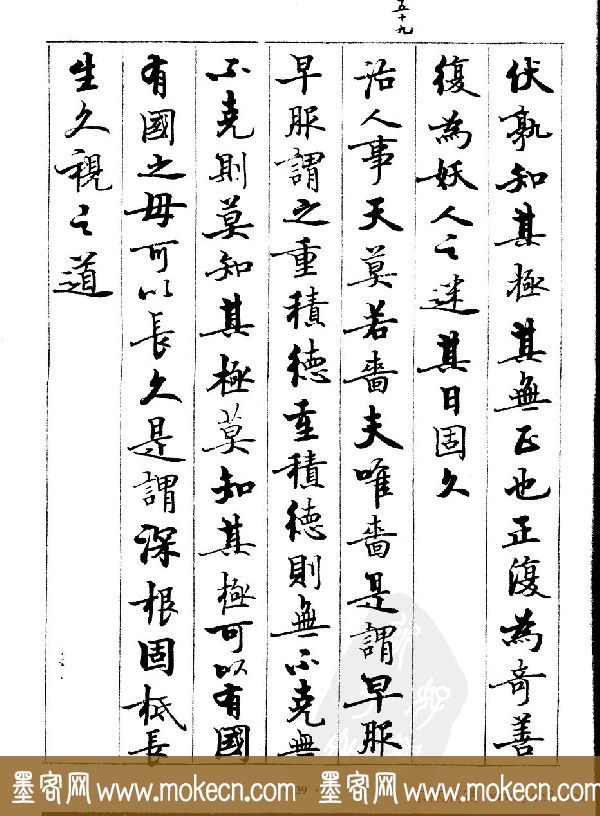 五十九
伏孰知其極其無正也正復為奇善
復為妖人之迷其日固久
治人事天莫若嗇夫唯嗇是謂早服
早服謂之重積德重積德則無不克無
不克則莫知其極莫知其極可以有國
有國之母可以長久是謂深根固柢長
生久視之道
39
墨客网 www.mokecn.com 墨客网 www.mokecn.com